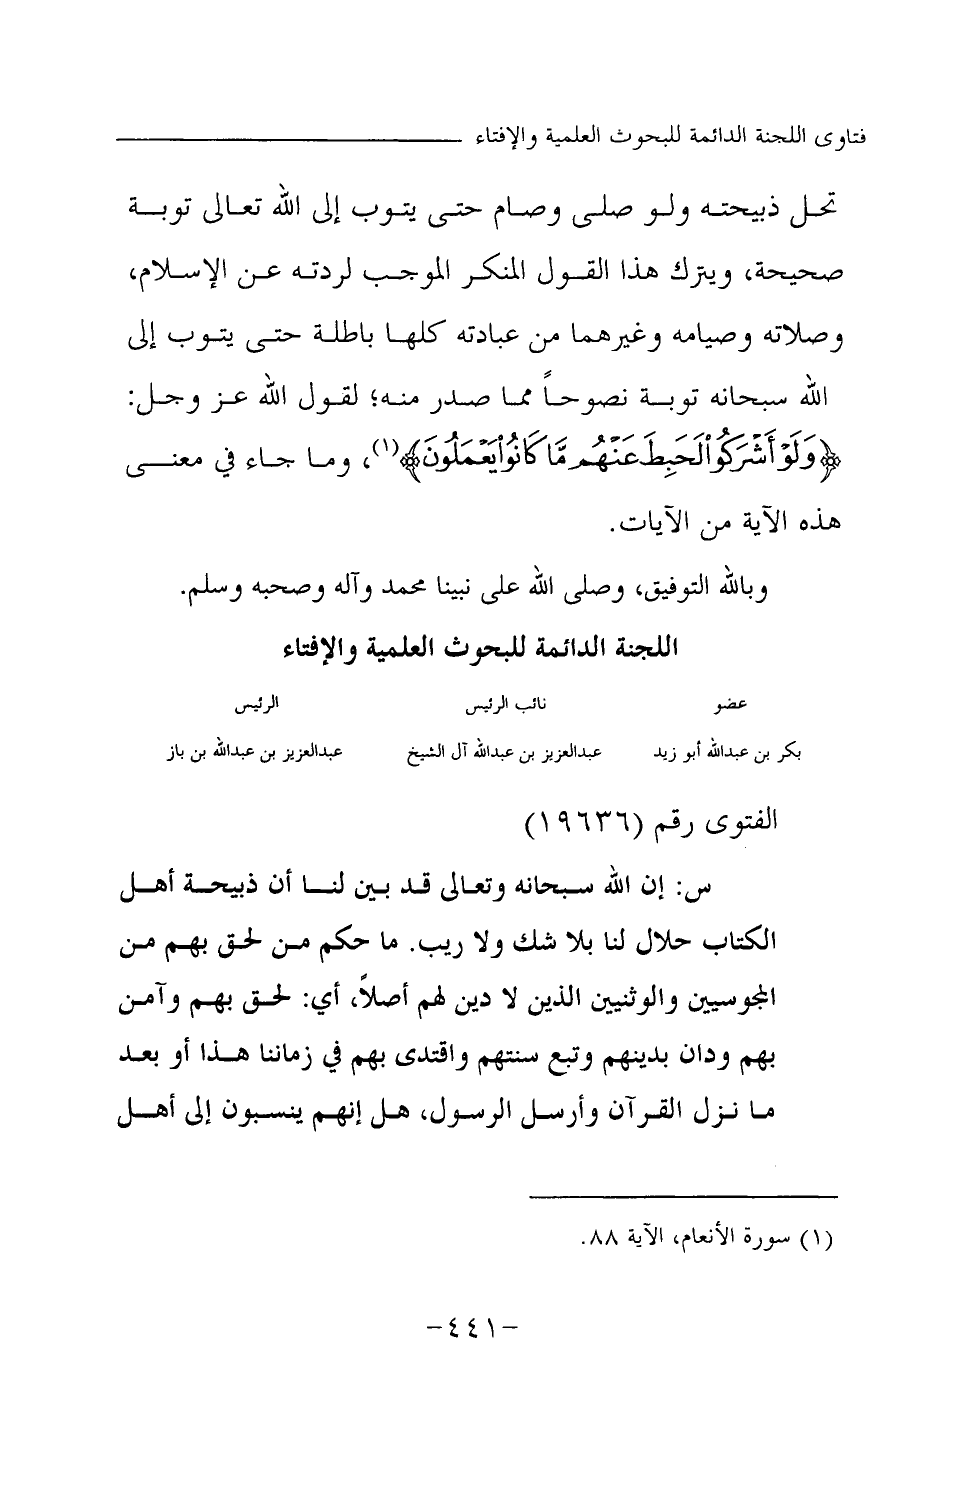 فتاوى اللجنة الدائمة للبحوث العلمية والإفتاء
تحل ذبيحته ولو صلى وصام حتى يتوب إلى الله تعالى توبة
صحيحة، ويترك هذا القول المنكر الموجب لردته عن الإسلام،
وصلاته وصيامه وغيرهما من عبادته كلها باطلة حتى يتوب إلى
الله سبحانه توبة نصوحاً مما صدر منه؛ لقول الله عز وجل:
﴿وَلَوْ أَشْرَكُوا لَحَبِطَ عَنْهُم مَّا كَانُوا يَعْمَلُونَ﴾(١)، وما جاء في معنى
هذه الآية من الآيات.
وبالله التوفيق، وصلى الله على نبينا محمد وآله وصحبه وسلم.
اللجنة الدائمة للبحوث العلمية والإفتاء
عضو نائب الرئيس الرئيس
بكر بن عبدالله أبو زيد عبدالعزيز بن عبدالله آل الشيخ عبدالعزيز بن عبدالله بن باز
الفتوى رقم (١٩٦٣٦)
س: إن الله سبحانه وتعالى قد بين لنا أن ذبيحة أهل
الكتاب حلال لنا بلا شك ولا ريب. ما حكم من لحق بهم من
المجوسيين والوثنيين الذين لا دين لهم أصلاً، أي: لحق بهم وآمن
بهم ودان بدينهم وتبع سنتهم واقتدى بهم في زماننا هذا أو بعد
ما نزل القرآن وأرسل الرسول، هل إنهم ينسبون إلى أهل
(١) سورة الأنعام، الآية ٨٨.
-٤٤١-